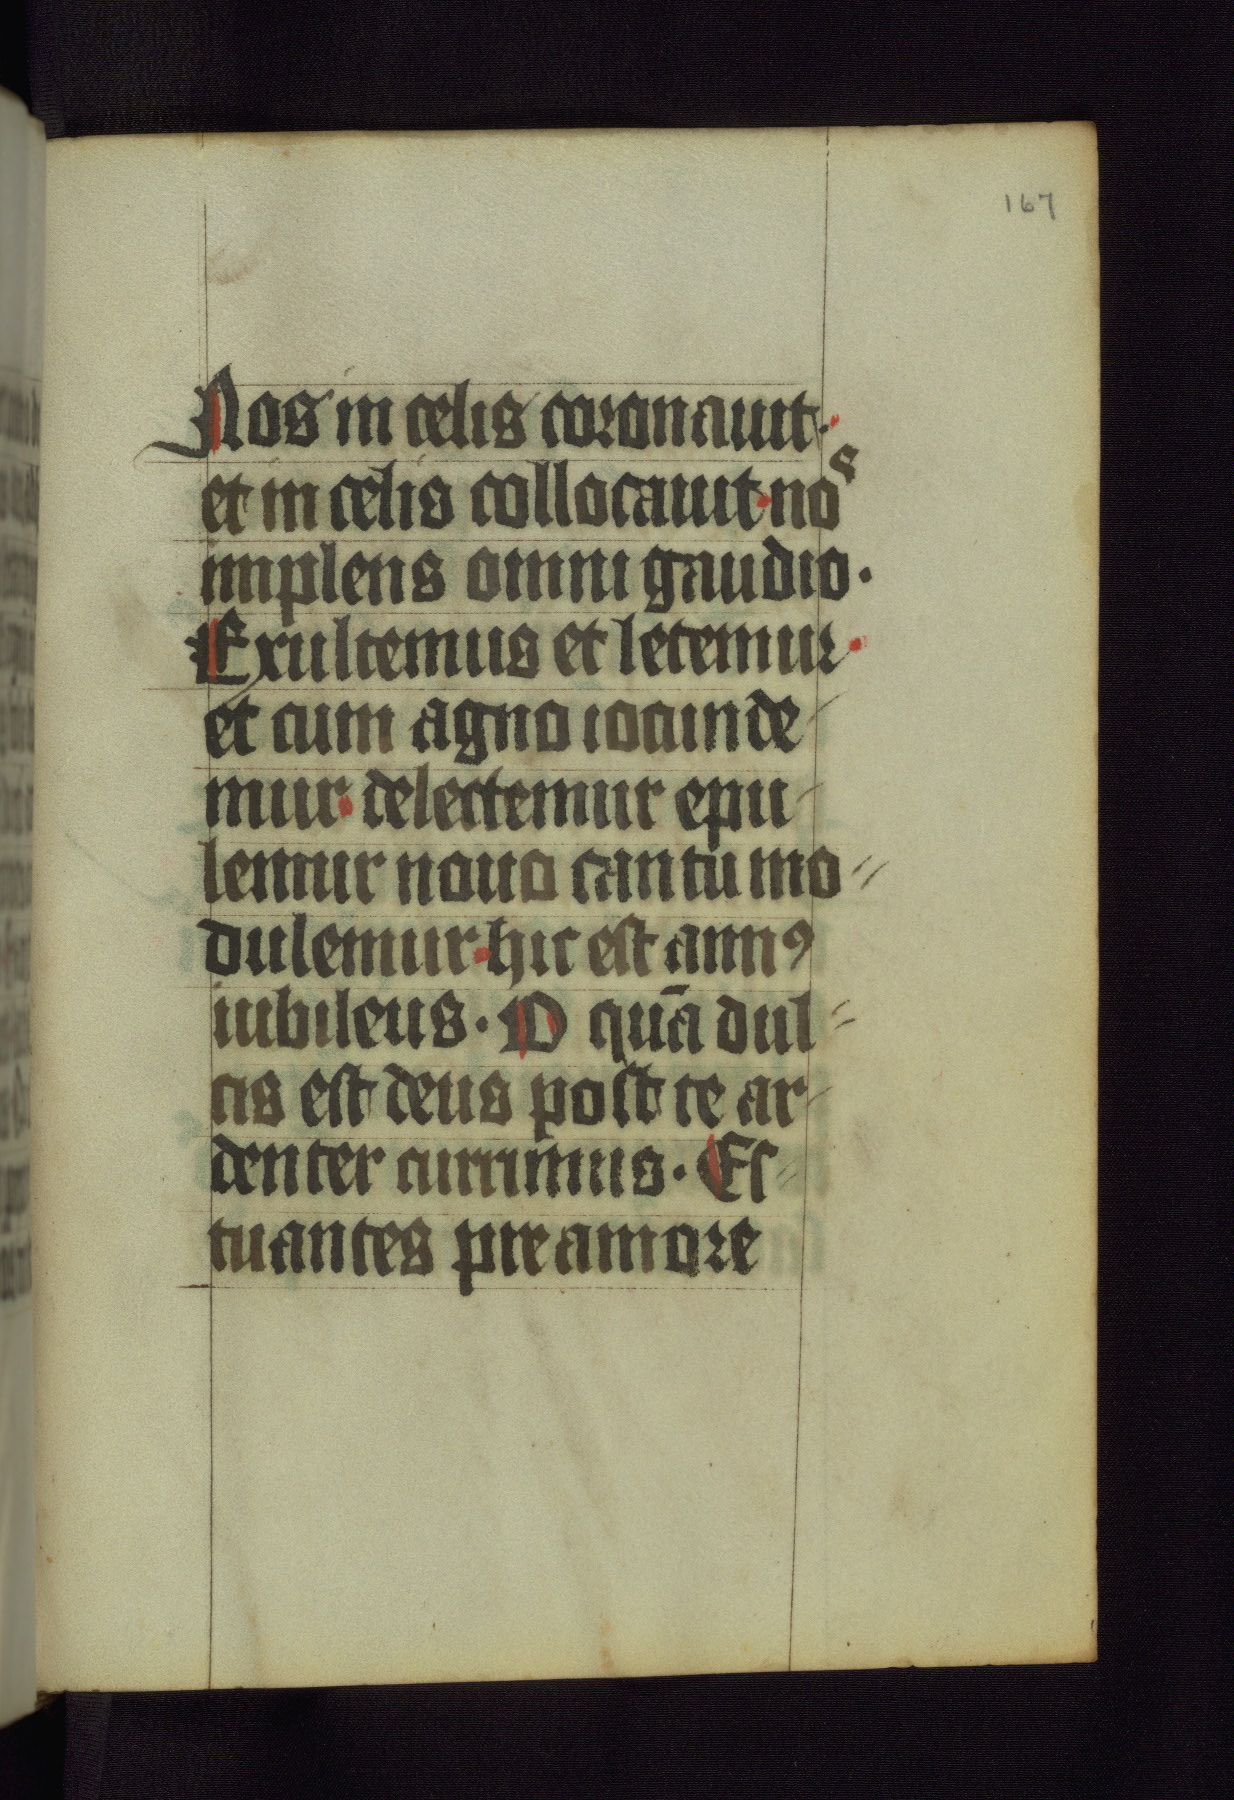 167
Nos in celis coronauit.
et in celis collocauit. nos
implens omni gaudio.
Exultemus et letemur.
et cum agno iocunde-
mur. delectemur epu-
lemur nouo cantu mo=
dulemur. hic est annꝰ
iubileus. O quā dul=
cis est deus post te ar-
denter currimus. Es=
tuantes pre amore